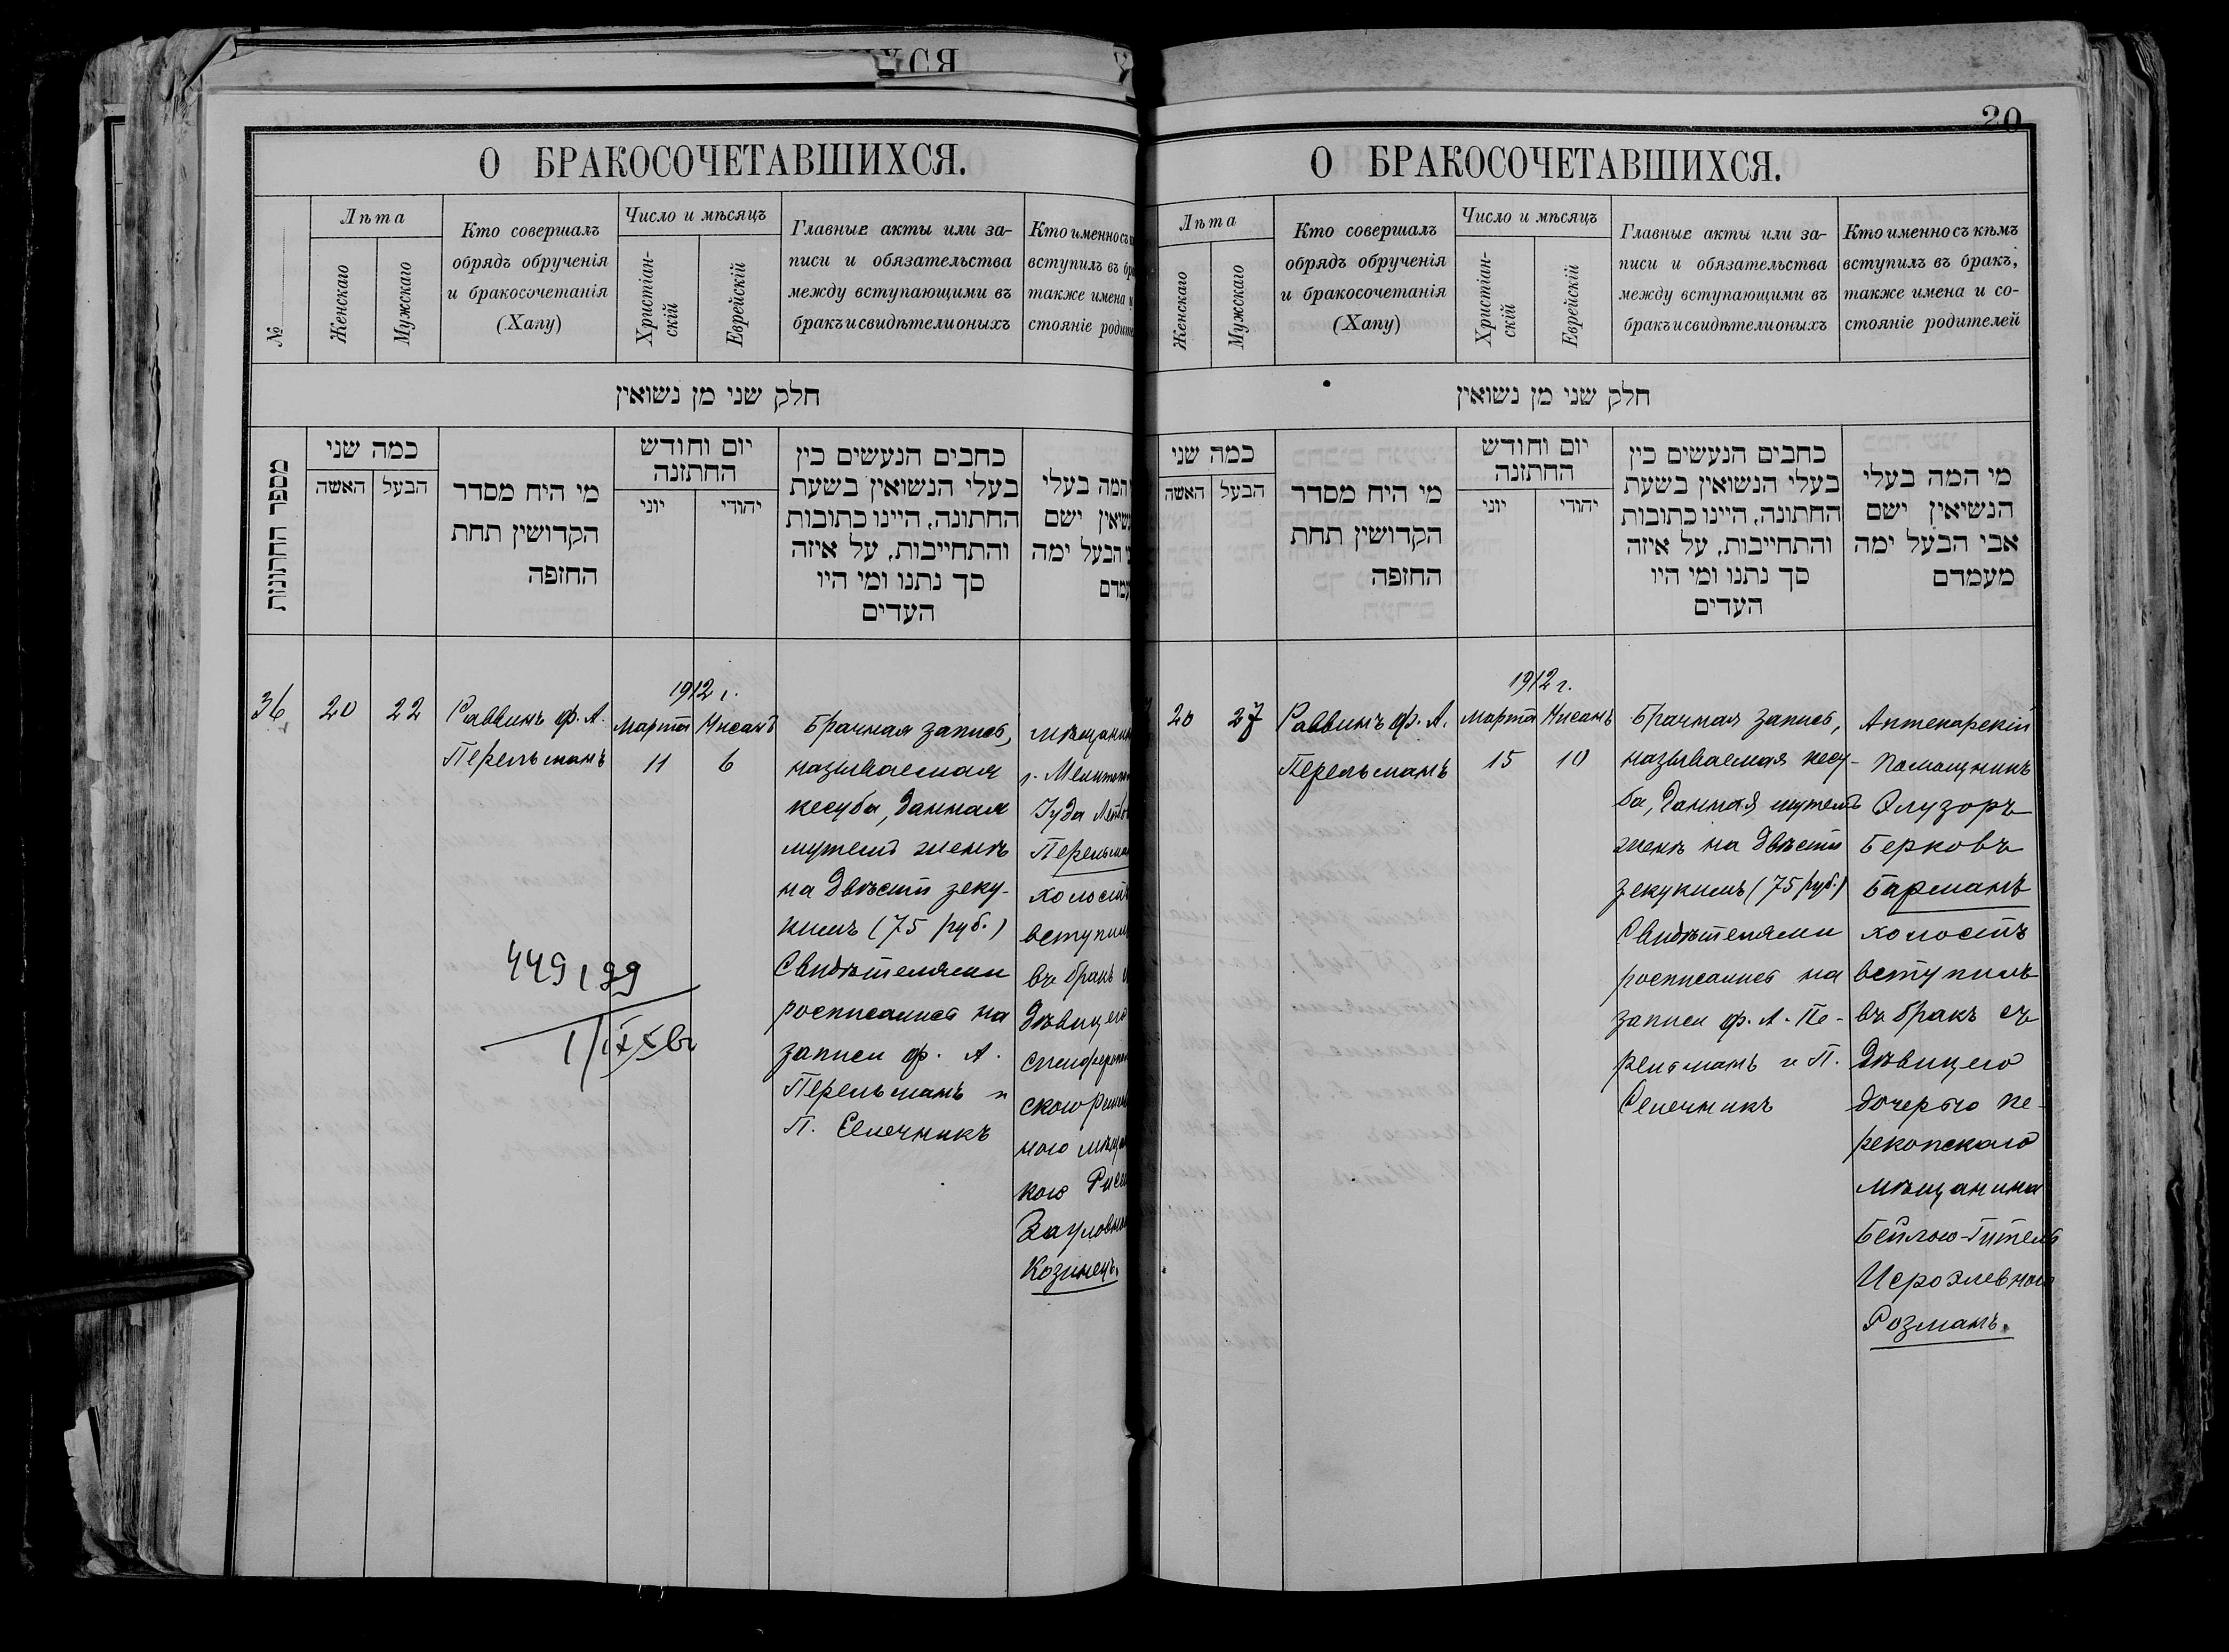 20
О БРАКОСОЧЕТАВШИХСЯ.
№
Лѣта
Женскаго
Мужскаго
Кто совершалъ
обрядъ обрученія
и бракосочетанія
(Хапу)
Число и мѣсяцъ
Христіан-
скій
Еврейскій
Главные акты или за-
писи и обязательства
между вступающими въ
бракъ и свидѣтели оныхъ
Кто именно съ
вступилъ въ
также имена
стояніе
חלק שני מן נשואין
מספר החתונות
כמה שני
האשה
הבעל
מי היח מסדר
הקדושין תחת
החזפה
יום וחודש
החתזנה
יוני
יהודי
כחבים הנעשים כין
בעלי הנשואין בשעת
החתונה, היינו כתובות
והתחייבות, על איזה
סך נתנו ומי היו
העדים
המה בעלי
ישם
הבעל ימה
36
20
22
Раввинъ Ф. А.
Перельманъ
1912 г.
Марта
11
Нисанъ
6
Брачная запись,
называемая
кесуба, данная
мужемъ женѣ
на двѣсти зеку-
кимъ (75 руб.)
Свидѣтелями
росписались на
записи Ф. А.
Перельманъ и
П. Селечникъ
г.
Іуда
холостъ
въ бракъ
дѣвицею
Козинецъ.
449199
О БРАКОСОЧЕТАВШИХСЯ.
Лѣта
Женскаго
Мужскаго
Кто совершалъ
обрядъ обрученія
и бракосочетанія
(Хапу)
Число и мѣсяцъ
Христіан-
скій
Еврейскій
Главные акты или за-
писи и обязательства
между вступающими въ
бракъ и свидѣтели оныхъ
Кто именно съ кѣмъ
вступилъ въ бракъ,
также имена и со-
стояніе родителей
חלק שני מן נשואין
כמה שני
האשה
הבעל
מי היח מסדר
הקדושין תחת
החזפה
יום וחודש
החתזנה
יוני
יהודי
כחבים הנעשים כין
בעלי הנשואין בשעת
החתונה, היינו כתובות
והתחייבות, על איזה
סך נתנו ומי היו
העדים
מי המה בעלי
הנשיאין ישם
אבי הבעל ימה
מעמדם
20
27
Раввинъ Ф. А.
Перельманъ
1912 г.
Марта
15
Нисанъ
10
Брачная запись,
называемая кесу-
ба, данная мужемъ
женѣ на двѣсти
зекукимъ (75 руб.)
Свидѣтелями
росписались на
записи Ф. А. Пе-
рельманъ и П.
Селечникъ
Аптекарскій
помощникъ
Элузоръ
Берковъ
Барманъ
холостъ
вступилъ
въ бракъ съ
дѣвицею
дочерью пе-
рекопскаго
мѣщанина
Бейлою-Гитель
Исроэлевною
Розманъ.